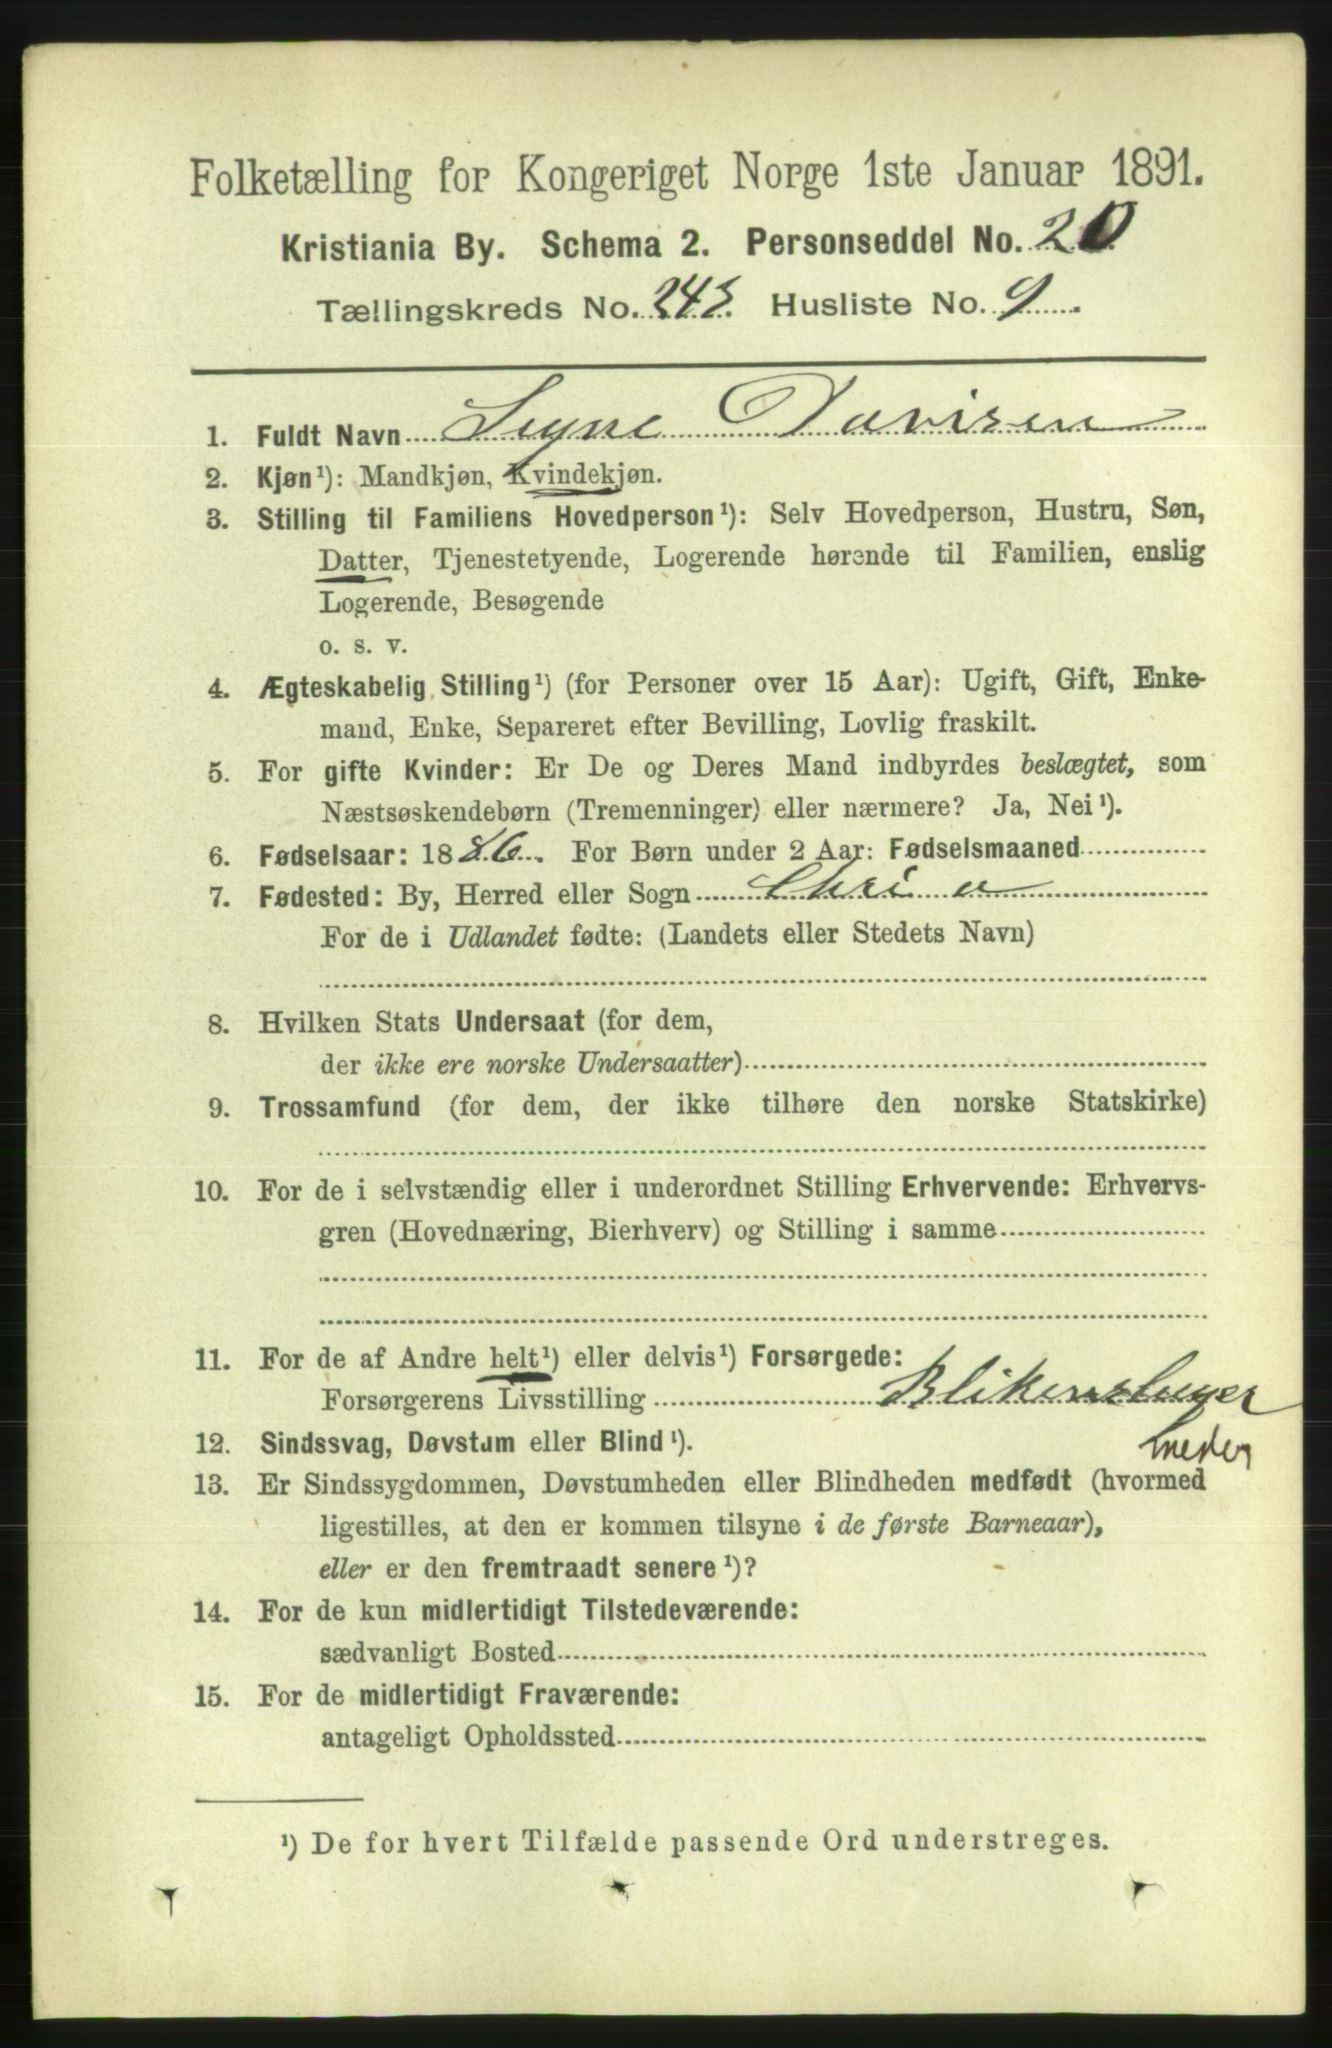 Folketælling for Kongeriget Norge 1ste Januar 1891.
Kristiania By. Schema 2. Personseddel No. 20
Tællingskreds No. 243. Husliste No. 9
1. Fuldt Navn Signe Davisen
2. Kjøn¹): Mandkjøn, Kvindekjøn.
3. Stilling til Familiens Hovedperson¹): Selv Hovedperson, Hustru, Søn,
Datter, Tjenestetyende, Logerende hørende til Familien, enslig
Logerende, Besøgende
o. s. v.
4. Ægteskabelig Stilling¹) (for Personer over 15 Aar): Ugift, Gift, Enke-
mand, Enke, Separeret efter Bevilling, Lovlig fraskilt.
5. For gifte Kvinder: Er De og Deres Mand indbyrdes beslægtet, som
Næstsøskendebørn (Tremenninger) eller nærmere? Ja, Nei¹).
6. Fødselsaar: 1886. For Børn under 2 Aar: Fødselsmaaned
7. Fødested: By, Herred eller Sogn Chri a
For de i Udlandet fødte: (Landets eller Stedets Navn)
8. Hvilken Stats Undersaat (for dem,
der ikke ere norske Undersaatter)
9. Trossamfund (for dem, der ikke tilhøre den norske Statskirke)
10. For de i selvstændig eller i underordnet Stilling Erhvervende: Erhvervs-
gren (Hovednæring, Bierhverv) og Stilling i samme
11. For de af Andre helt¹) eller delvis¹) Forsørgede:
Forsørgerens Livsstilling Blikenslager
12. Sindssvag, Døvstum eller Blind¹).
13. Er Sindssygdommen, Døvstumheden eller Blindheden medfødt (hvormed
ligestilles, at den er kommen tilsyne i de første Barneaar),
eller er den fremtraadt senere¹)?
14. For de kun midlertidigt Tilstedeværende:
sædvanligt Bosted
15. For de midlertidigt Fraværende:
antageligt Opholdssted
¹) De for hvert Tilfælde passende Ord understreges.